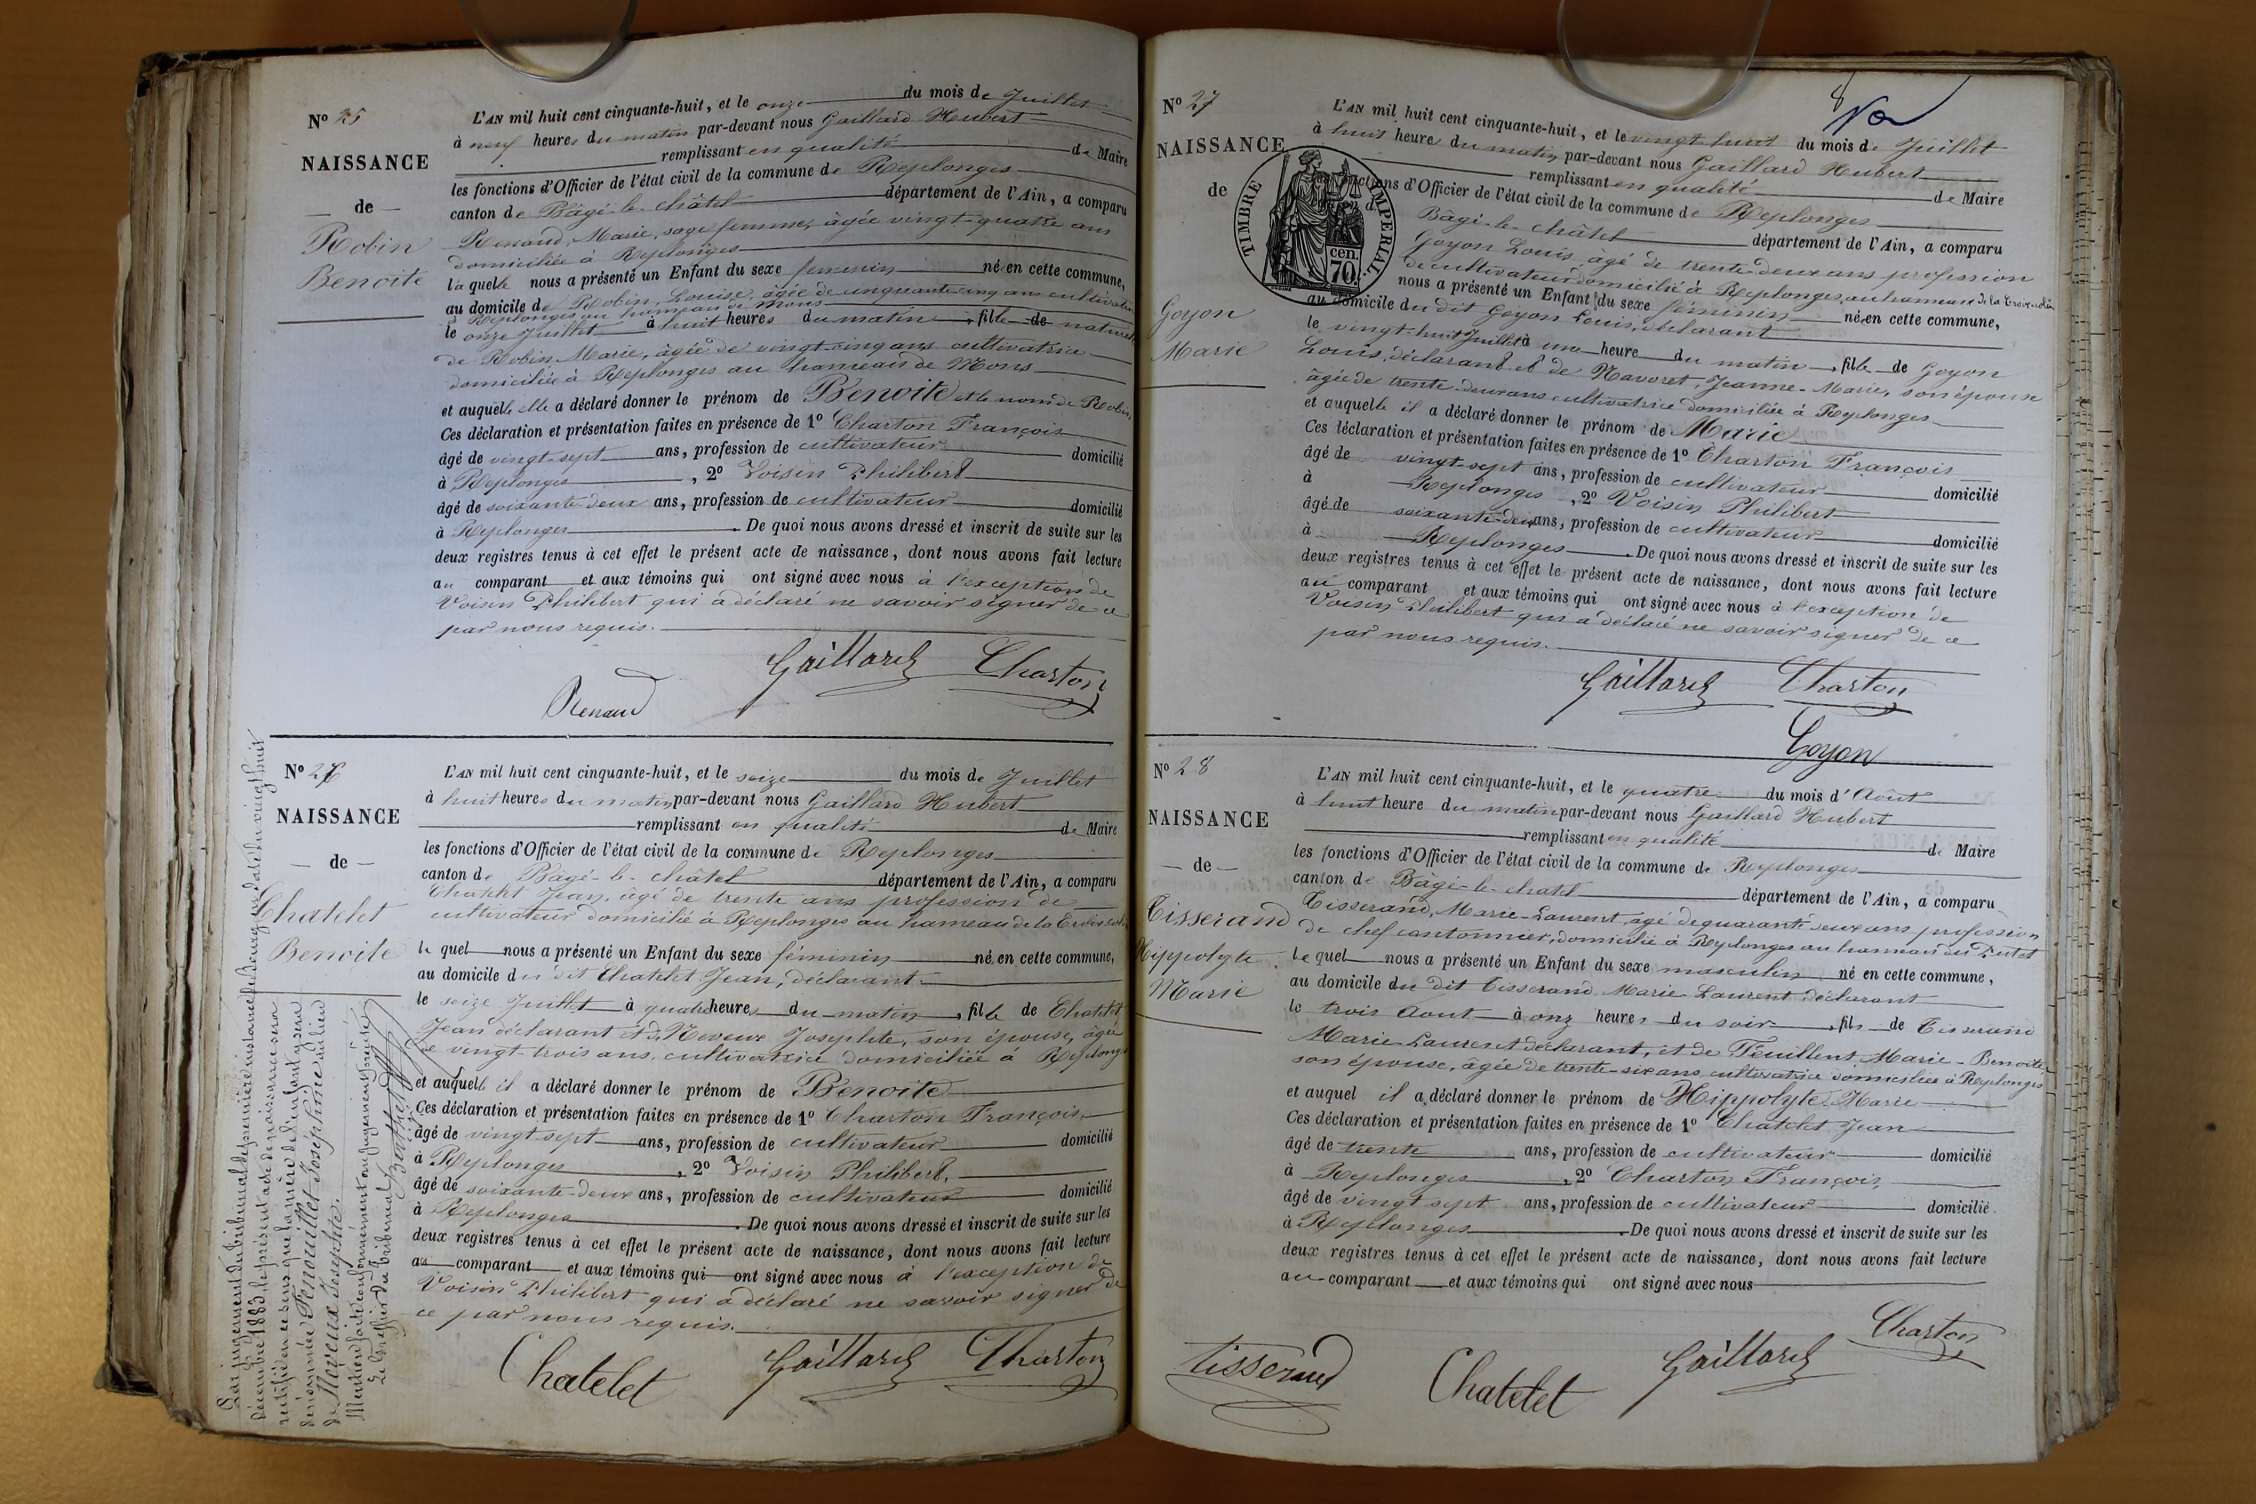 N° 25
NAISSANCE
de
Robin
Benoite
L'AN mil huit cent cinquante-huit, et le onze du mois de Juillet
à neuf heures du matin par-devant nous Gaillard Hubert
remplissant en qualité de Maire
les fonctions d'Officier de l'état civil de la commune de Replonges
canton de Bâgé-le-châtel département de l'Ain, a comparu
Renaud, Marie, sage femme, âgée vingt-quatre ans
domiciliée à Replonges
laquelle nous a présenté un Enfant du sexe féminin né en cette commune,
au domicile de Robin, Louise, âgée de cinquante cinq ans cultivatrice
à Replonges au hameau de Mons
le onze Juillet à huit heures du matin, fille de naturelle
de Robin Marie, âgée de vingt-cinq ans cultivatrice
domiciliée à Replonges au hameau de Mons
et auquelle elle a déclaré donner le prénom de Benoite et le nom de Robin
Ces déclaration et présentation faites en présence de 1° Charton François
âgé de vingt-sept ans, profession de cultivateur domicilié
à Replonges, 2° Voisin Philibert
âgé de soixante-deux ans, profession de cultivateur domicilié
à Replonges. De quoi nous avons dressé et inscrit de suite sur les
deux registres tenus à cet effet le présent acte de naissance, dont nous avons fait lecture
au comparant et aux témoins qui ont signé avec nous à l'exception de
Voisin Philibert qui a déclaré ne savoir signer de ce
par nous requis.
Gaillard Charton
Renaud
N° 26
NAISSANCE
de
Chatelet
Benoite
L'AN mil huit cent cinquante-huit, et le seize du mois de Juillet
à huit heures du matin par-devant nous Gaillard Hubert
remplissant en qualité de Maire
les fonctions d'Officier de l'état civil de la commune de Replonges
canton de Bâgé-le-châtel département de l'Ain, a comparu
Chatelet Jean, âgé de trente ans profession de
cultivateur domicilié à Replonges au hameau de la
le quel nous a présenté un Enfant du sexe féminin né en cette commune,
au domicile du dit Chatelet Jean, déclarant
le seize Juillet à quatre heures du matin, fille de Chatelet
Jean déclarant et de Neveux Josephte, son épouse, âgée
de vingt-trois ans, cultivatrice domiciliée à Replonges
et auquelle il a déclaré donner le prénom de Benoite
Ces déclaration et présentation faites en présence de 1° Charton François
âgé de vingt-sept ans, profession de cultivateur domicilié
à Replonges, 2° Voisin Philibert,
âgé de soixante-deux ans, profession de cultivateur domicilié
à Replonges. De quoi nous avons dressé et inscrit de suite sur les
deux registres tenus à cet effet le présent acte de naissance, dont nous avons fait lecture
au comparant et aux témoins qui ont signé avec nous à l'exception de
Voisin Philibert qui a déclaré ne savoir signer de
ce par nous requis.
Chatelet Gaillard Charton
Par jugement du tribunal de première instance de Bourg en date du vingt huit
décembre 1883, le présent acte de naissance sera
rectifié en ce sens que la mère de l'enfant y sera
dénommée Fenouillet Joséphine au lieu
de Neveux Josephte.
Mention faite conformément au jugement précité
Le Greffier du tribunal
N° 27
NAISSANCE
de
Goyon
Marie
TIMBRE IMPERIAL
70 cen.
8
L'AN mil huit cent cinquante-huit, et le vingt-huit du mois de Juillet
à huit heures du matin par-devant nous Gaillard Hubert
remplissant en qualité de Maire
fonctions d'Officier de l'état civil de la commune de Replonges
Bâgé-le-châtel département de l'Ain, a comparu
Goyon Louis, âgé de trente-deux ans profession
de cultivateur domicilié à Replonges, au hameau de la
nous a présenté un Enfant du sexe féminin né en cette commune,
au domicile du dit Goyon Louis, déclarant
le vingt-huit Juillet à une heure du matin, fille de Goyon
Louis, déclarant et de Navoret, Jeanne-Marie, son épouse
âgée de trente-deux ans cultivatrice domiciliée à Replonges
et auquelle il a déclaré donner le prénom de Marie
Ces déclaration et présentation faites en présence de 1° Charton François
âgé de vingt-sept ans, profession de cultivateur domicilié
à Replonges, 2° Voisin Philibert
âgé de soixante-deux ans, profession de cultivateur domicilié
à Replonges. De quoi nous avons dressé et inscrit de suite sur les
deux registres tenus à cet effet le présent acte de naissance, dont nous avons fait lecture
au comparant et aux témoins qui ont signé avec nous à l'exception de
Voisin Philibert qui a déclaré ne savoir signer de ce
par nous requis.
Gaillard Charton
Goyon
N° 28
NAISSANCE
de
Tisserand
Hippolyte
Marie
L'AN mil huit cent cinquante-huit, et le quatre du mois d'Août
à huit heure du matin par-devant nous Gaillard Hubert
remplissant en qualité de Maire
les fonctions d'Officier de l'état civil de la commune de Replonges
canton de Bâgé-le-chatel département de l'Ain, a comparu
Tisserand, Marie-Laurent, âgé de quarante deux ans profession
de chef cantonnier, domicilié à Replonges au hameau du
le quel nous a présenté un Enfant du sexe masculin né en cette commune,
au domicile du dit Tisserand Marie Laurent déclarant
le trois Aout à onz heures du soir, fils de Tisserand
Marie Laurent déclarant, et de Feuillent, Marie-Benoite
son épouse, âgée de trente-six ans cultivatrice domiciliée à Replonges
et auquel il a déclaré donner le prénom de Hippolyte Marie
Ces déclaration et présentation faites en présence de 1° Chatelet Jean
âgé de trente ans, profession de cultivateur domicilié
à Replonges, 2° Charton François
âgé de vingt sept ans, profession de cultivateur domicilié
à Replonges. De quoi nous avons dressé et inscrit de suite sur les
deux registres tenus à cet effet le présent acte de naissance, dont nous avons fait lecture
au comparant et aux témoins qui ont signé avec nous
Tisserand Chatelet Gaillard Charton